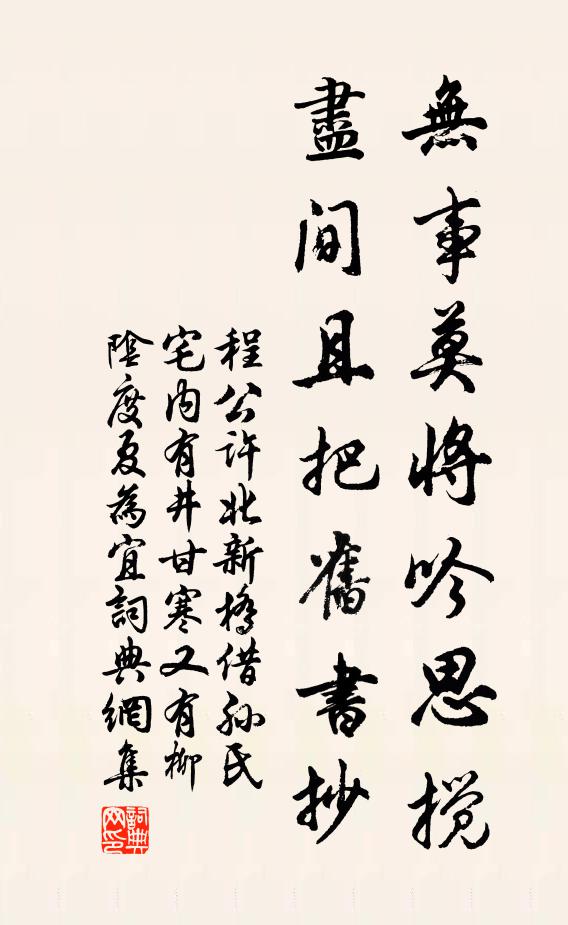 無事莫將吟思攪
盡間且把舊書抄
程公許北新橋借孙氏
宅内有井甘寒又有柳
陰度夏為宜詞典網集
詞典网印